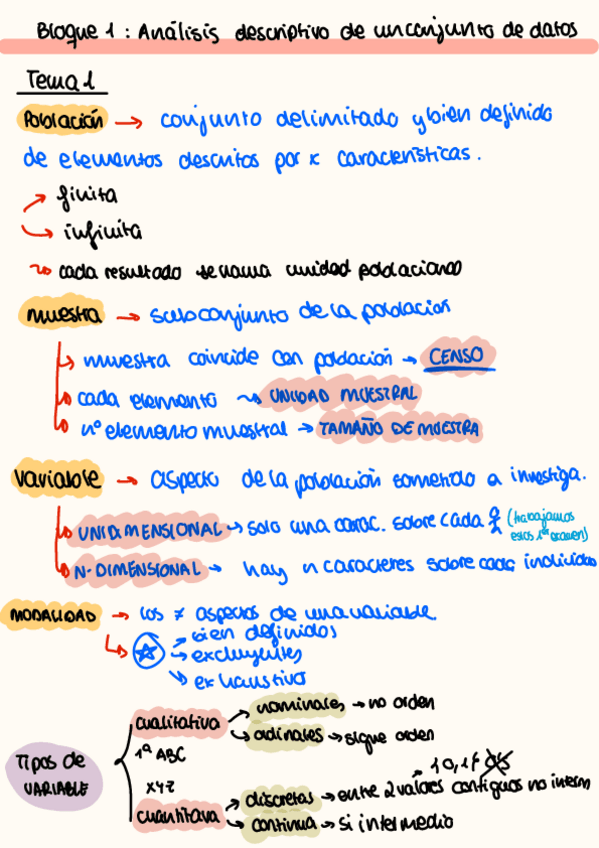 Bloque 1: Análisis descriptivo de un conjunto de datos
Tema 1
Población → conjunto delimitado y bien definido
de elementos descritos por x características.
→ finita
→ infinita
→ cada resultado se llama unidad poblacional
muestra → subconjunto de la población
→ muestra coincide con población → CENSO
→ cada elemento → UNIDAD MUESTRAL
→ nº elemento muestral → TAMAÑO DE MUESTRA
Variable → aspecto de la población sometido a investiga.
→ UNIDIMENSIONAL → solo una carac. sobre cada (trabajamos
estas 1er examen)
→ N-DIMENSIONAL → hay n caracteres sobre cada individuo
MODALIDAD → los ≠ aspectos de una variable.
→ bien definidos
→ excluyentes
→ exhaustivo
Tipos de
VARIABLE
cualitativa
→ nominales → no orden
→ ordinales → sigue orden
1ª ABC
XYZ
cuantitava
→ discretas → entre 2 valores contiguos no interm
→ continua → si intermedio